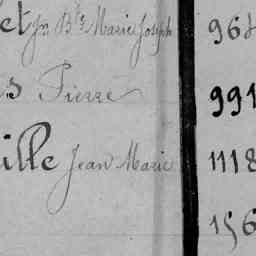 et Jn Bte Marie Joseph 968
s Pierre 991
ille Jean Marie 1118
156